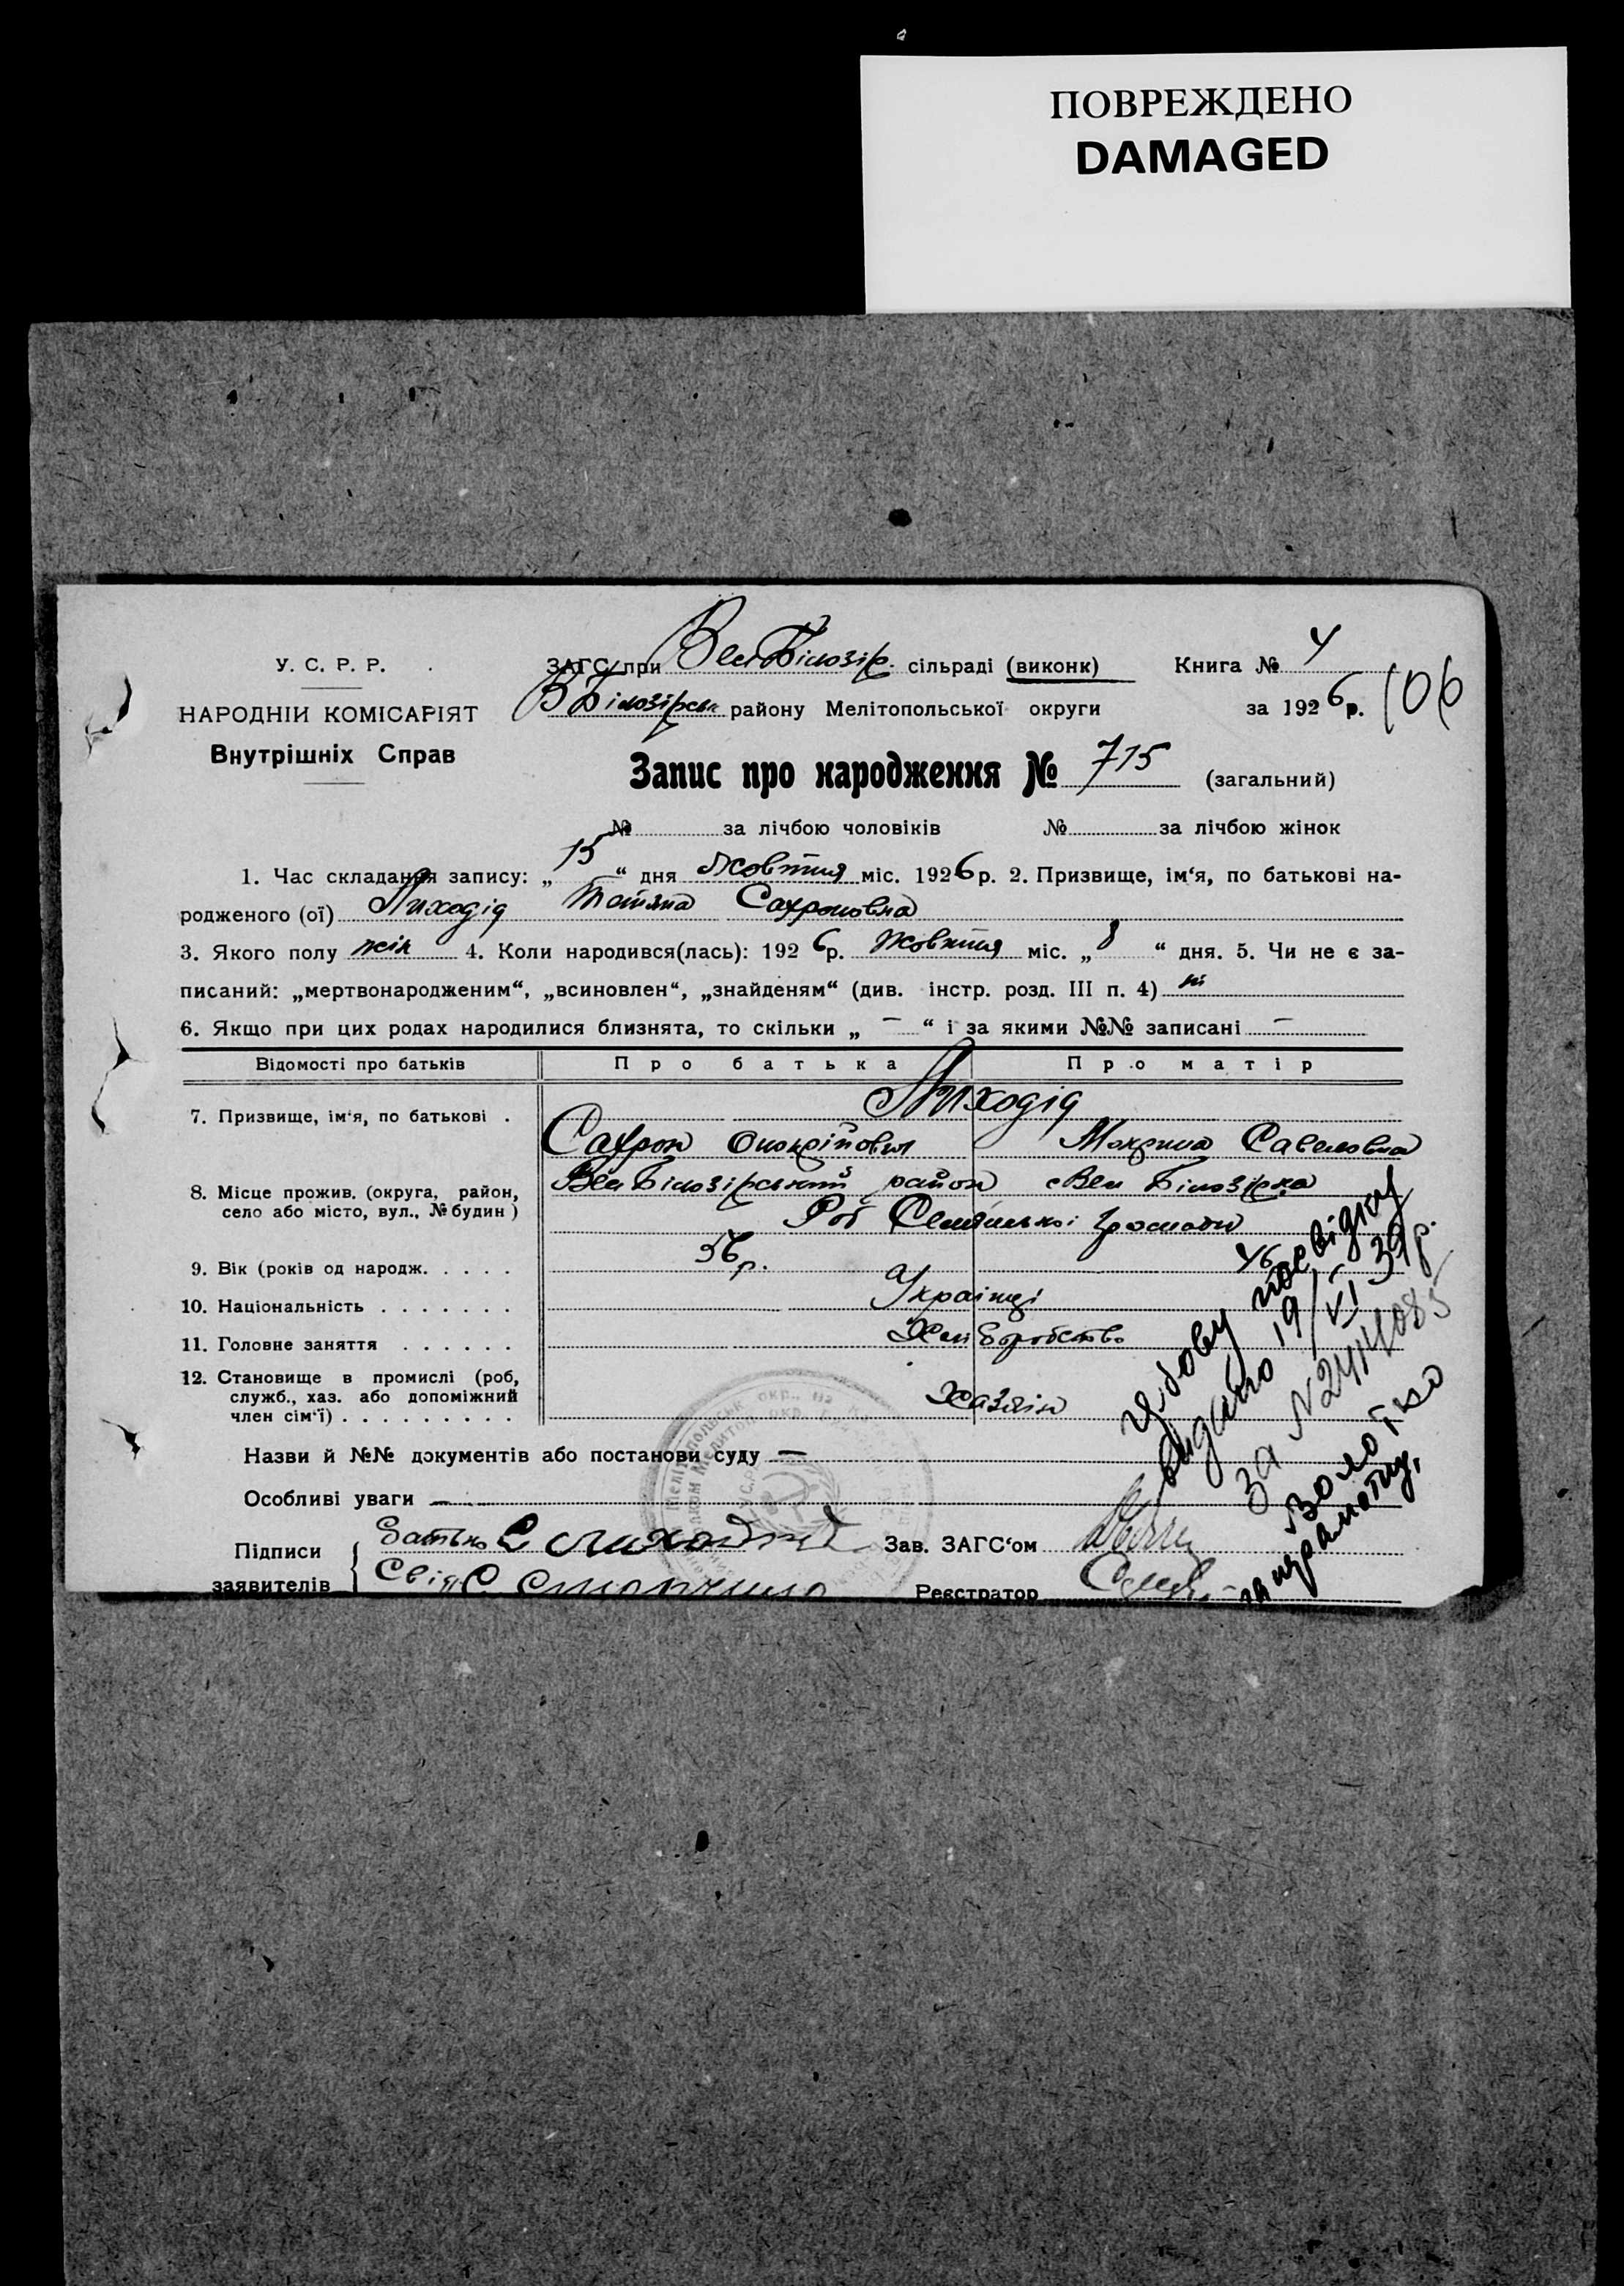 ПОВРЕЖДЕНО
DAMAGED
У. С. Р. Р.
НАРОДНІЙ КОМІСАРІЯТ
Внутрішніх Справ
ЗАГС при Вел Білозір. сільраді (виконк) Книга № 4
В Білозірськ району Мелітопольської округи за 1926 р. 106
Запис про народження № 715 (загальний)
№ за лічбою чоловіків № за лічбою жінок
1. Час складання запису: „15“ дня Жовтня міс. 1926 р. 2. Призвище, ім‘я, по батькові на-
родженого (ої) Лиходід Татяна Сафроновна
3. Якого полу жін 4. Коли народився(лась): 1926 р. Жовтня міс. „8“ дня. 5. Чи не є за-
писаний: „мертвонародженим“, „всиновлен“, „знайденям“ (див. інстр. розд. III п. 4) ні
6. Якщо при цих родах народилися близнята, то скільки „ — “ і за якими №№ записані —
Відомості про батьків Про батька Про матір
7. Призвище, ім‘я, по батькові . Лиходід
Сафрон Мокрина Савеловна
8. Місце прожив. (округа, район,
село або місто, вул., № будин )
Вел Білозірський район с Вел Білозірка
громади
9. Вік (років од народж. . . . . 56 р. 46
10. Національність . . . . . . . Українці
11. Головне заняття . . . . . . Хліборобство
12. Становище в промислі (роб,
служб., хаз. або допоміжний
член сім‘ї) . . . . . . . . . Хазяін
Назви й №№ документів або постанови суду —
Особливі уваги —
Підписи
заявителів
Батько С Лиходід
Свід С
Зав. ЗАГС‘ом
Реєстратор
видано 19/VI 39 р.
за №